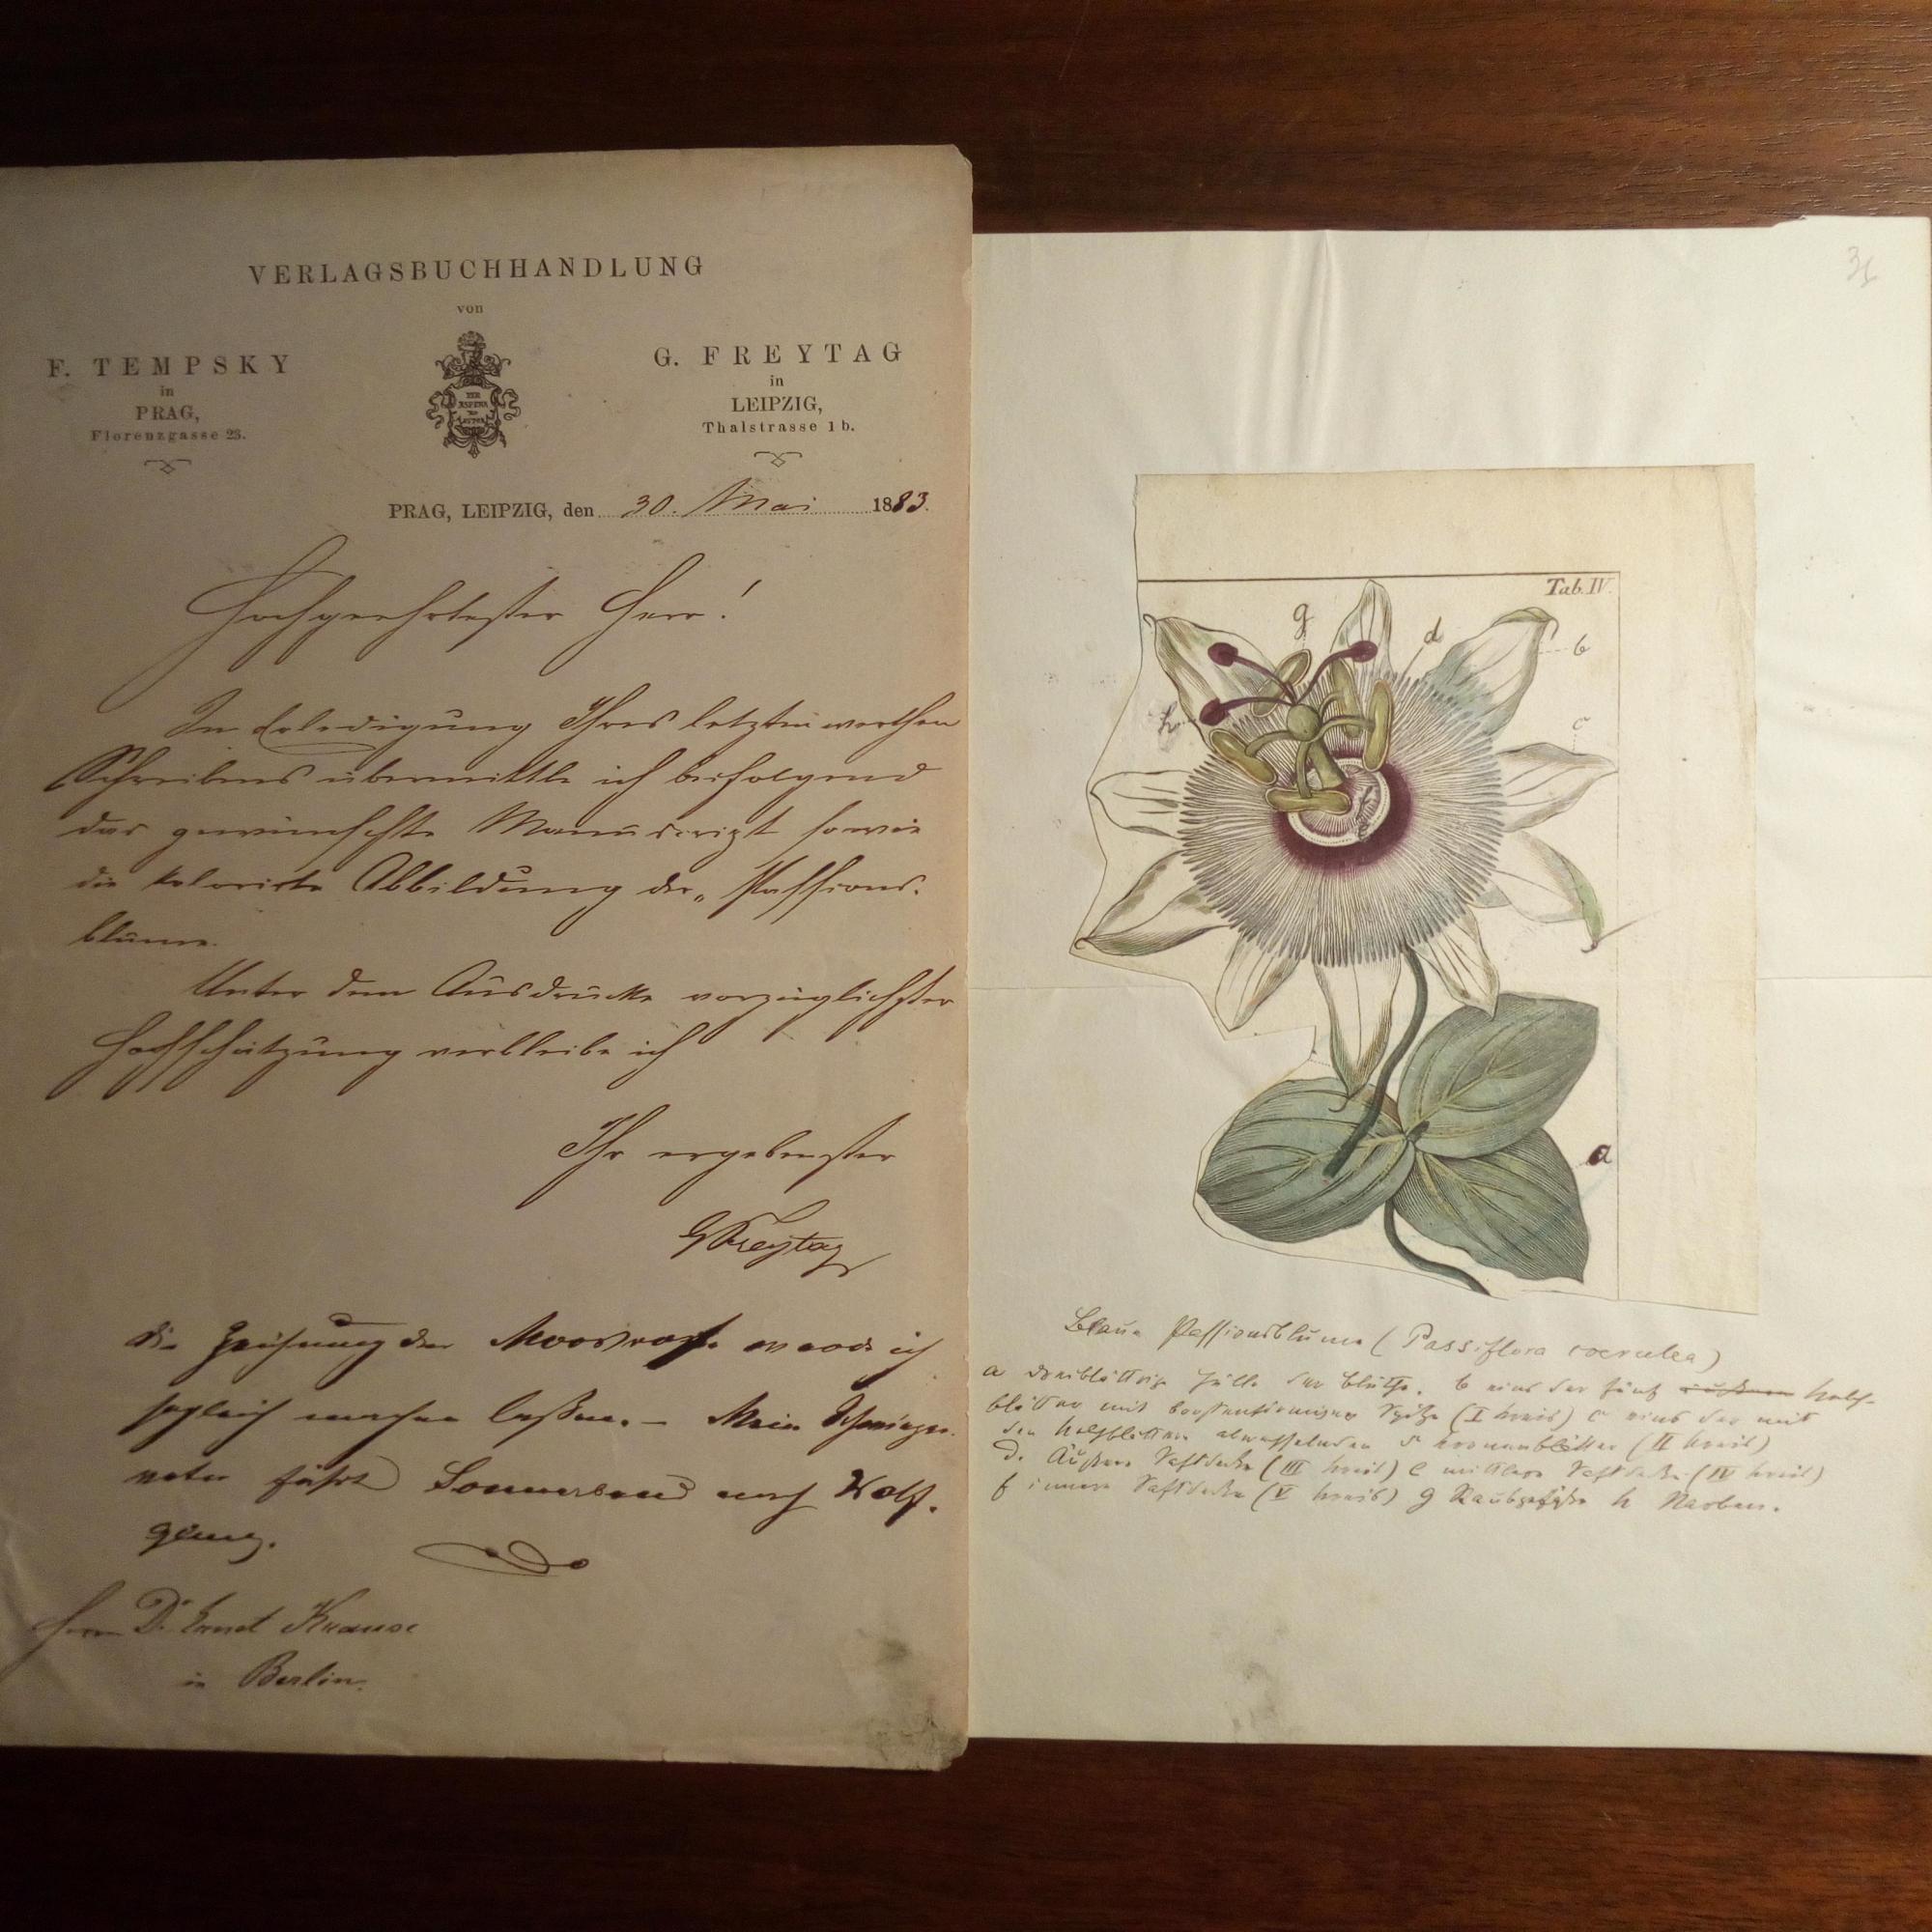 VERLAGSBUCHHANDLUNG
von
F. TEMPSKY
in
PRAG,
Florenzgasse 23.
PER
ASPERA
AD
ASTRA
G. FREYTAG
in
LEIPZIG,
Thalstrasse 1b.
PRAG, LEIPZIG, den 30. Mai 1883.
Hochgeehrtester Herr!
In Erledigung Ihres letzten werthen
Schreibens übermittle ich beifolgend
das gewünschte Manuscript sowie
die kolorirte Abbildung der „Passions-
blume.
Unter dem Ausdrucke vorzüglichster
Hochschätzung verbleibe ich
Ihr ergebenster
GFreytag
die Zeichnung der Moosrose werde ich
sogleich machen lassen. – Mein Schwieger-
vater fährt Sonnabend nach Wolf-
gang.
Herrn Dr. Ernst Krause
in Berlin.
Tab. IV.
g
d
b
c
h
a
Blaue Passionsblume (Passiflora coerulea)
a dreiblättrige Hülle der Blüthe. b eins der fünf äußeren Kelch-
blätter mit borstenförmiger Spitze (I Kreis) c eins der mit
den Kelchblättern abwechselnden 5 Kronenblätter (II Kreis)
d. Äußere Saftdecke (III Kreis) e mittlere Saftdecke (IV Kreis)
f innere Saftdecke (V Kreis) g Staubgefäße h Narben.